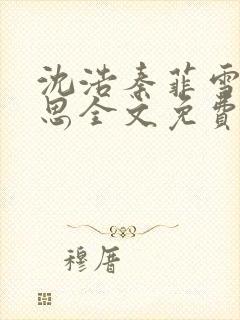 沈浩秦菲雪
思全文免费
穆厝